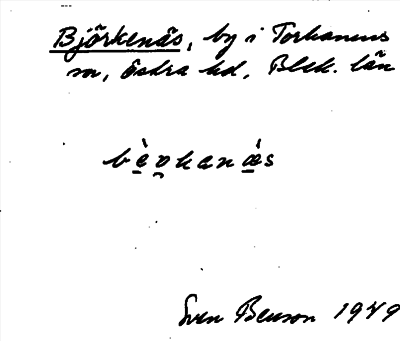 Björkenäs, by i Torhamns
sn, Östra hd, Blek. län
bèo̯kanæ̀s
Sven Benson 1949